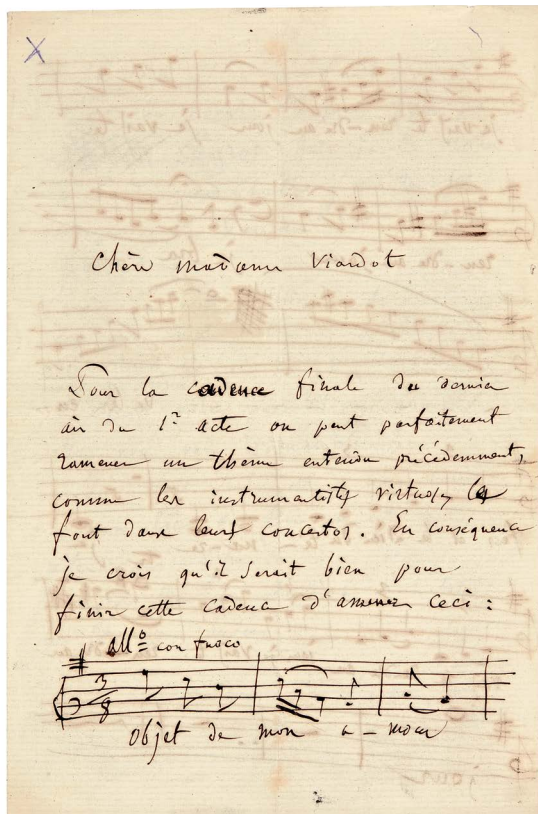 Chère madame Viardot
Pour la cadence finale du dernier
air du 1r acte on peut parfaitement
ramener un thème entendu précédemment,
comme les instrumentistes virtuoses le
font dans leurs concertos. En conséquence
je crois qu'il serait bien pour
finir cette cadence d'amener ceci :
allo con fuoco
3
8
Objet de mon a - mour